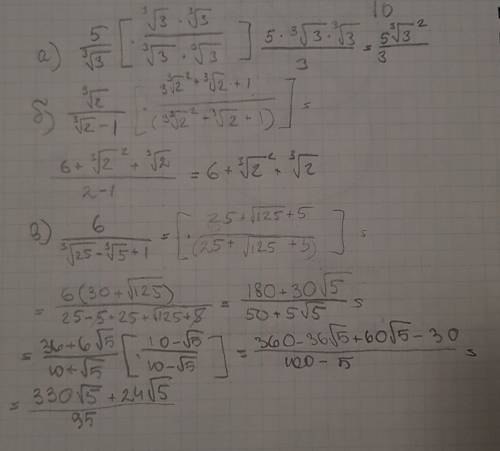 10
а) 5/∛3 [· ∛3 · ∛3 / ∛3 · ∛3] 5 · ∛3 · ∛3 / 3 = 5∛3² / 3
б) ∛2 / ∛2 - 1 [· 3∛2² + ∛2 + 1 / (3∛2² + ∛2 + 1)] =
6 + ∛2² + ∛2 / 2 - 1 = 6 + ∛2² + ∛2
в) 6 / ∛25 - ∛5 + 1 = [· 25 + √125 + 5 / (25 + √125 + 5)] =
= 6(30 + √125) / 25 - 5 + 25 + √125 + 5 = 180 + 30√5 / 50 + 5√5 =
= 36 + 6√5 / 10 + √5 [· 10 - √5 / 10 - √5] = 360 - 36√5 + 60√5 - 30 / 100 - 5 =
= 330√5 + 24√5 / 95